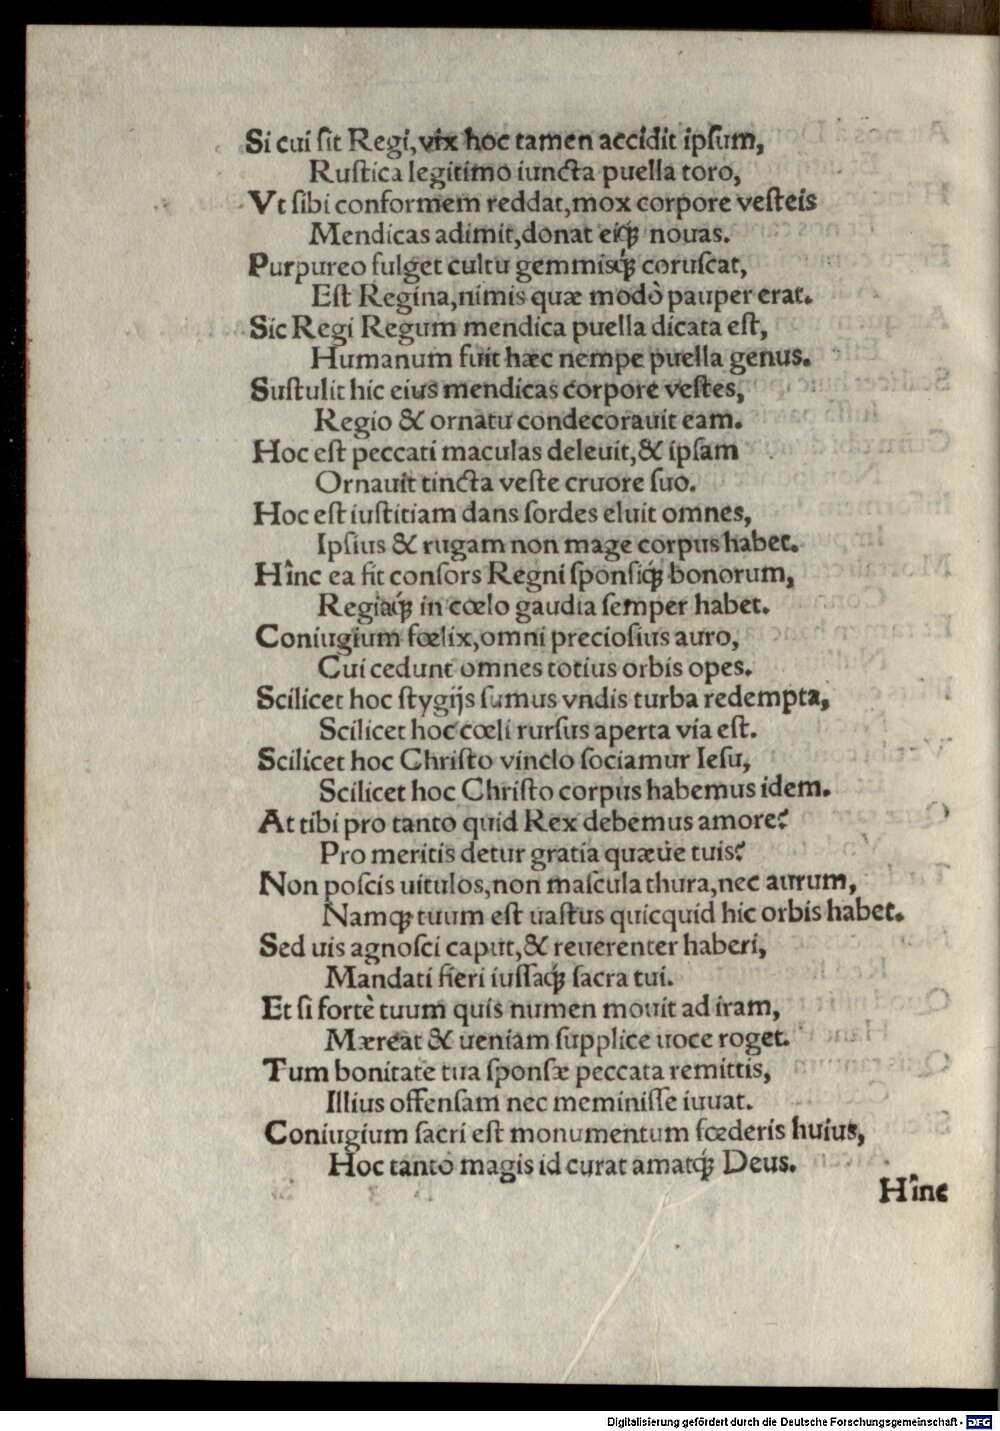 Si cui ſit Regi, vix hoc tamen accidit ipſum,
Ruſtica legitimo iuncta puella toro,
Vt ſibi conformem reddat, mox corpore veſteis
Mendicas adimit, donat eiq́ꝫ nouas.
Purpureo fulget cultu gemmisq́ꝫ coruſcat,
Eſt Regina, nimis quæ modò pauper erat.
Sic Regi Regum mendica puella dicata eſt,
Humanum fuit hæc nempe puella genus.
Suſtulit hic eius mendicas corpore veſtes,
Regio & ornatu condecorauit eam.
Hoc eſt peccati maculas deleuit, & ipſam
Ornauit tincta veſte cruore ſuo.
Hoc eſt iuſtitiam dans ſordes eluit omnes,
Ipſius & rugam non mage corpus habet.
Hînc ea fit conſors Regni ſponſiq́ꝫ bonorum,
Regiaq́ꝫ in cœlo gaudia ſemper habet.
Coniugium fœlix, omni precioſius auro,
Cui cedunt omnes totius orbis opes.
Scilicet hoc ſtygijs ſumus vndis turba redempta,
Scilicet hoc cœli rurſus aperta via eſt.
Scilicet hoc Chriſto vinclo ſociamur Ieſu,
Scilicet hoc Chriſto corpus habemus idem.
At tibi pro tanto quid Rex debemus amore?
Pro meritis detur gratia quæue tuis?
Non poſcis uitulos, non maſcula thura, nec aurum,
Namqꝫ tuum eſt uaſtus quicquid hic orbis habet.
Sed uis agnoſci caput, & reuerenter haberi,
Mandati fieri iuſſaq́ꝫ ſacra tui.
Et ſi fortè tuum quis numen mouit ad iram,
Mæreat & ueniam ſupplice uoce roget.
Tum bonitate tua ſponſæ peccata remittis,
Illius offenſam nec meminiſſe iuuat.
Coniugium ſacri eſt monumentum fœderis huius,
Hoc tanto magis id curat amatq́ꝫ Deus.
Hînc
Digitalisierung gefördert durch die Deutsche Forschungsgemeinschaft - DFG